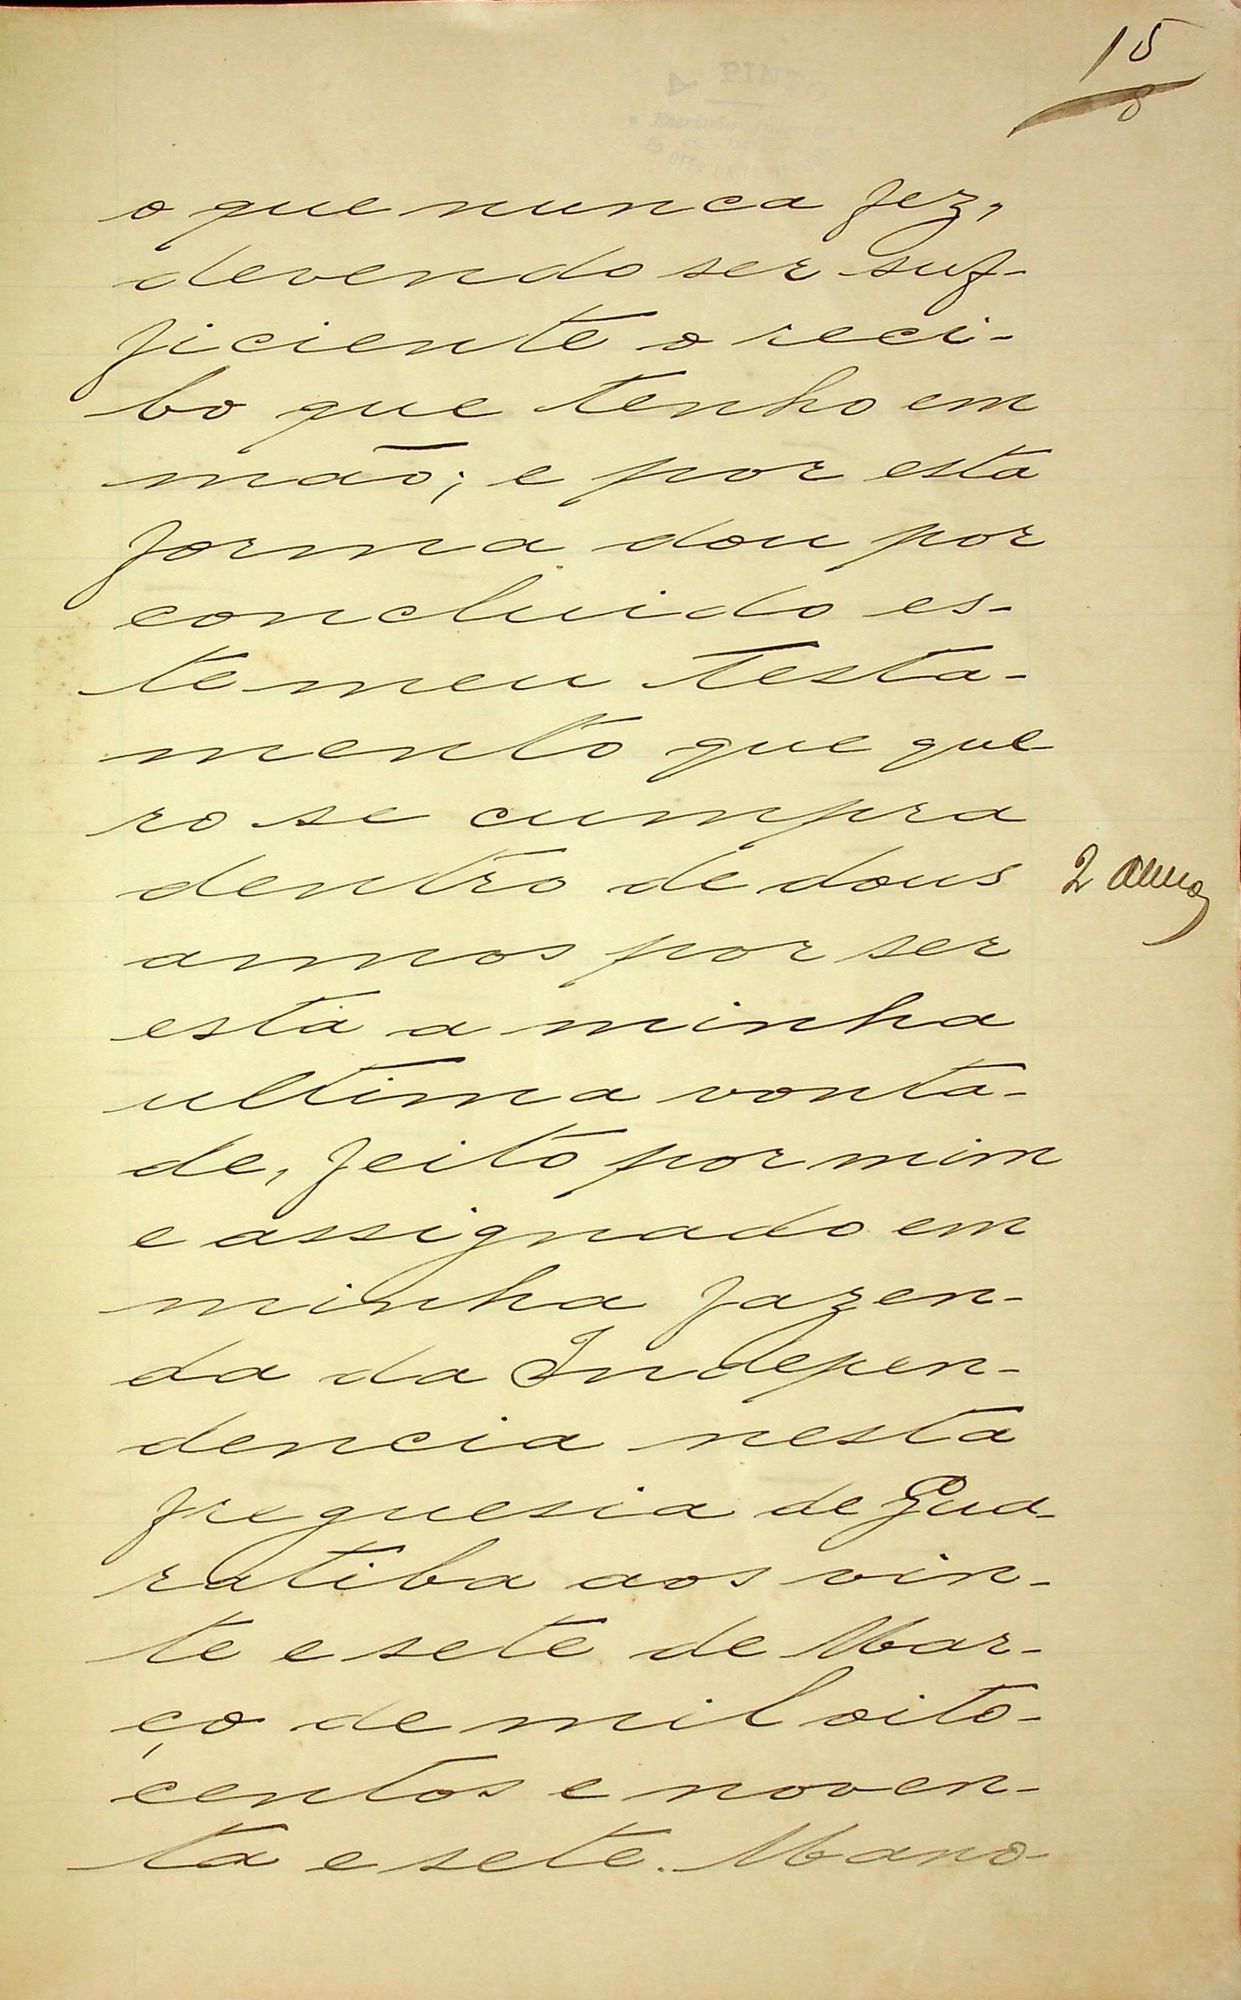 15
8
A PINTO
o que nunca fez,
devendo ser suf-
ficiente o reci-
bo que tenho em
mão; e por esta
forma dou por
concluido es-
te meu testa-
mento que que-
ro se cumpra
dentro de dous
2 annos
annos por ser
esta a minha
ultima vonta-
de, feito por mim
e assignado em
minha fazen-
da da Indepen-
dencia nesta
freguesia de Gua-
ratiba aos vin-
te e sete de Mar-
ço de mil oito-
centos e noven-
ta e sete. Mano-